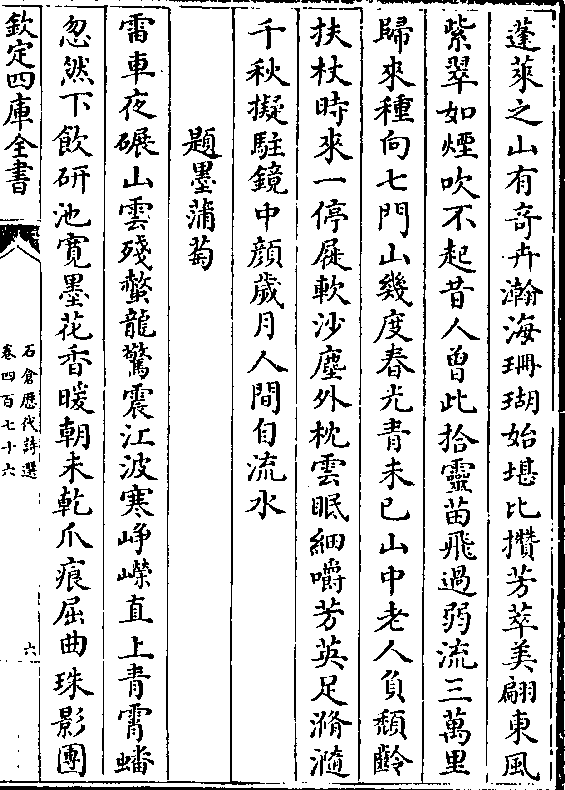 蓬萊之山有奇卉瀚海珊瑚始堪比攢芳萃美翩東風
紫翠如煙吹不起昔人曾此拾靈苗飛過弱流三萬里
歸來種向七門山幾度春光青未已山中老人負頽齡
扶杖時來一停屐軟沙塵外枕雲眠細嚼芳英足滫瀡
千秋擬駐鏡中顔歲月人間自流水
題墨蒲萄
雷車夜碾山雲殘螫龍驚震江波寒崢嶸直上青霄蟠
忽然下飲研池寛墨花香暖朝未乾爪痕屈曲珠影團
欽定四庫全書
石倉歷代詩選
卷四百七十六
六